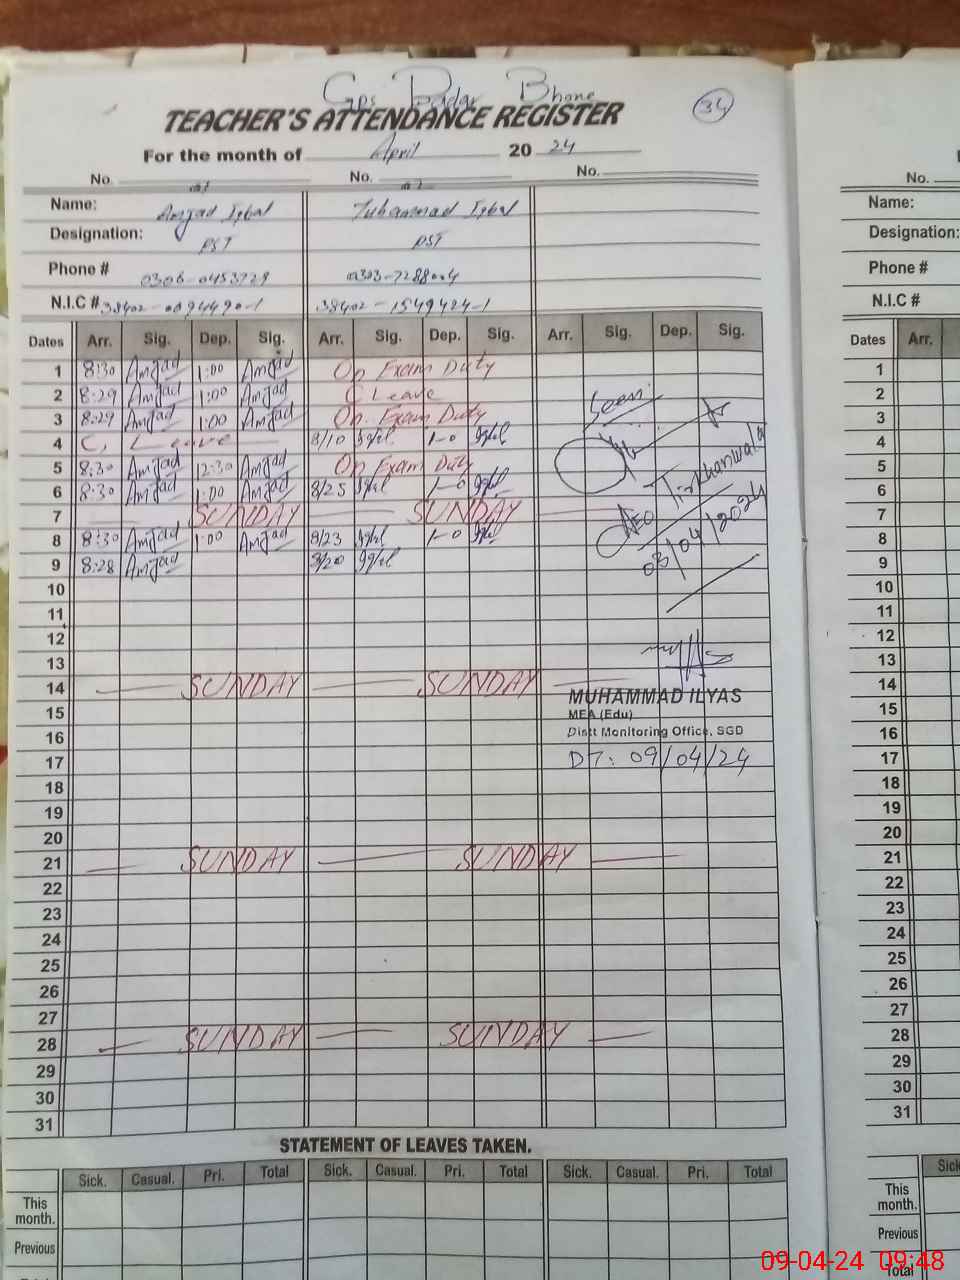 Gps Dadar Bhone
TEACHER'S ATTENDANCE REGISTER
34
For the month of April 20 24
No. 01 No. 02 No.
Name: Amjad Iqbal Muhammad Iqbal
Designation: PST PST
Phone # 0306-0453729
N.I.C # 38402-0094490-1 38402-1549424-1
Dates Arr. Sig. Dep. Sig. Arr. Sig. Dep. Sig. Arr. Sig. Dep. Sig.
1 8:30 Amjad 1:00 Amjad On Exam Duty
2 8:29 Amjad 1:00 Amjad C Leave
3 8:29 Amjad 1:00 Amjad On Exam Duty
4 C, Leave 8/10 Iqbal 1-0 Iqbal
5 8:30 Amjad 12:30 Amjad On Exam Duty
6 8:30 Amjad 1:00 Amjad 8/25 Iqbal 1-0 Iqbal
7 SUNDAY SUNDAY
8 8:30 Amjad 1:00 Amjad 8/23 Iqbal 1-0 Iqbal
9 8:28 Amjad 8/20 Iqbal
10
11
12
13
14 SUNDAY SUNDAY
15
16
17
18
19
20
21 SUNDAY SUNDAY
22
23
24
25
26
27
28 SUNDAY SUNDAY
29
30
31
Seen
AEO Tirkhanwala
08/04/2024
MUHAMMAD ILYAS
MEA (Edu)
Distt Monitoring Office, SGD
DT: 09/04/24
STATEMENT OF LEAVES TAKEN.
Sick. Casual. Pri. Total Sick. Casual. Pri. Total Sick. Casual. Pri. Total
This month.
Previous
No.
Name:
Designation:
Phone #
N.I.C #
Dates Arr.
1
2
3
4
5
6
7
8
9
10
11
12
13
14
15
16
17
18
19
20
21
22
23
24
25
26
27
28
29
30
31
Sick
This month.
Previous
Total
09-04-24 09:48